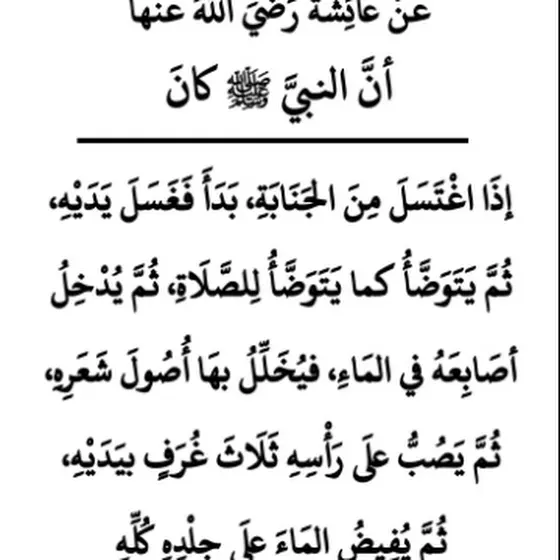 عَنْ عَائِشَةَ رَضْيَ اللهُ عَنْها
أنَّ النبيَّ ﷺ كانَ
إذَا اغْتَسَلَ مِنَ الجَنَابَةِ، بَدَأَ فَغَسَلَ يَدَيْهِ،
ثُمَّ يَتَوَضَّأُ كما يَتَوَضَّأُ لِلصَّلَاةِ، ثُمَّ يُدْخِلُ
أصَابِعَهُ في المَاءِ، فيُخَلِّلُ بهَا أُصُولَ شَعَرِهِ،
ثُمَّ يَصُبُّ علَى رَأْسِهِ ثَلَاثَ غُرَفٍ بيَدَيْهِ،
ثُمَّ يُفِيضُ المَاءَ علَى جِلْدِهِ كُلِّهِ